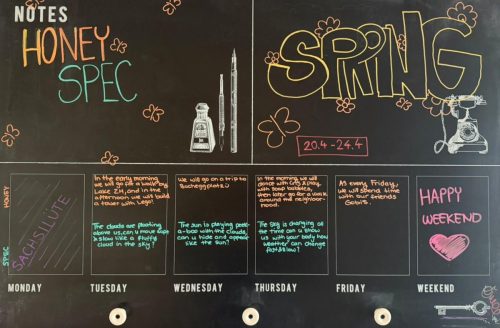 NOTES
HONEY
SPEC
SPRING
20.4 - 24.4
HONEY
SPEC
SACHSILÜTE
In the early morning
we will go for a walk by
Lake ZH, and in the
afternoon we will build
a tower with Lego!
The clouds are floating
above us, can u move
& slow like a fluffy
cloud in the sky?
We will go on a trip to
The sun is playing peek-
a-boo with the clouds,
can u hide and appear
like the sun?
In the morning we will
dance with Cris & play
with soap bubbles,
then later go for a walk
around the neighbour-
hood.
The sky is changing all
the time can u show
us with your body how
weather can change
fast & slow?
As every Friday,
we will spend time
with our friends
HAPPY
WEEKEND
MONDAY
TUESDAY
WEDNESDAY
THURSDAY
FRIDAY
WEEKEND